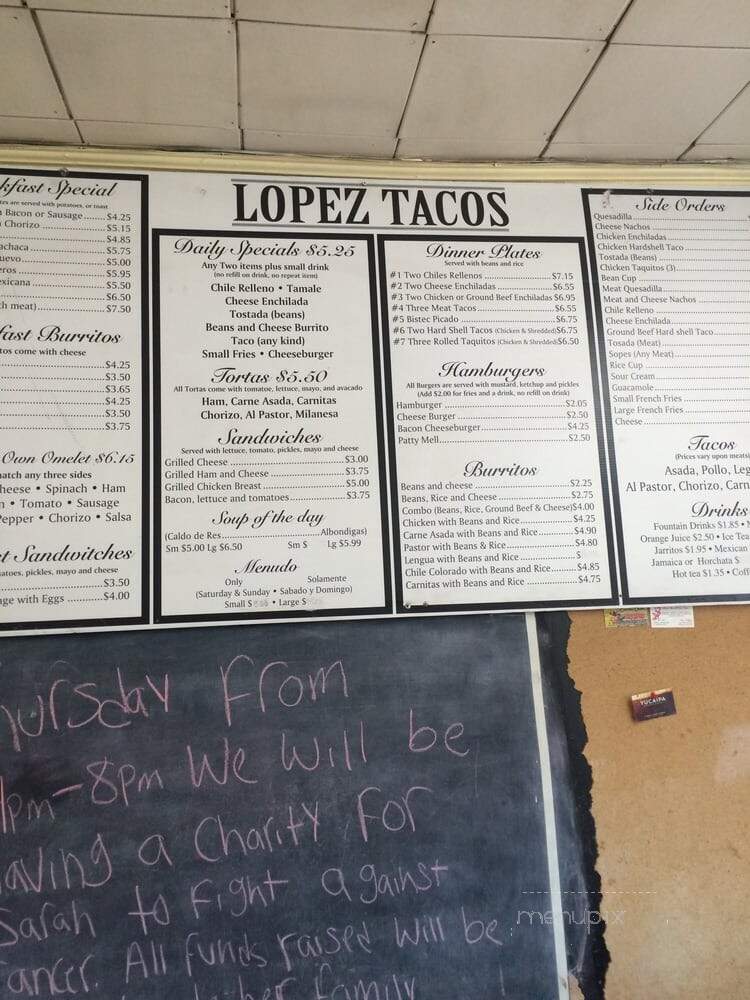 LOPEZ TACOS
kfast Special
tes are served with potatoes, or toast
Bacon or Sausage $4.25
Chorizo $5.15
$4.85
achaca $5.75
uevo $5.00
eros $5.95
exicana $5.50
$6.50
th meat) $7.50
fast Burritos
tos come with cheese
$4.25
$3.50
$3.65
$4.25
$3.50
$3.75
Own Omelet $6.15
atch any three sides
heese • Spinach • Ham
n • Tomato • Sausage
Pepper • Chorizo • Salsa
st Sandwitches
atoes, pickles, mayo and cheese
$3.50
age with Eggs $4.00
Daily Specials $5.25
Any Two items plus small drink
(no refill on drink, no repeat item)
Chile Relleno • Tamale
Cheese Enchilada
Tostada (beans)
Beans and Cheese Burrito
Taco (any kind)
Small Fries • Cheeseburger
Tortas $5.50
All Tortas come with tomatoe, lettuce, mayo, and avacado
Ham, Carne Asada, Carnitas
Chorizo, Al Pastor, Milanesa
Sandwiches
Served with lettuce, tomato, pickles, mayo and cheese
Grilled Cheese $3.00
Grilled Ham and Cheese $3.75
Grilled Chicken Breast $5.00
Bacon, lettuce and tomatoes $3.75
Soup of the day
(Caldo de Res Albondigas)
Sm $5.00 Lg $6.50 Sm $ Lg $5.99
Menudo
Only Solamente
(Saturday & Sunday • Sabado y Domingo)
Small $ • Large $
Dinner Plates
Served with beans and rice
#1 Two Chiles Rellenos $7.15
#2 Two Cheese Enchiladas $6.55
#3 Two Chicken or Ground Beef Enchiladas $6.95
#4 Three Meat Tacos $6.55
#5 Bistec Picado $6.75
#6 Two Hard Shell Tacos (Chicken & Shredded) $6.75
#7 Three Rolled Taquitos (Chicken & Shredded) $6.50
Hamburgers
All Burgers are served with mustard, ketchup and pickles
(Add $2.00 for fries and a drink, no refill on drink)
Hamburger $2.05
Cheese Burger $2.50
Bacon Cheeseburger $4.25
Patty Mell $2.50
Burritos
Beans and cheese $2.25
Beans, Rice and Cheese $2.75
Combo (Beans, Rice, Ground Beef & Cheese) $4.00
Chicken with Beans and Rice $4.25
Carne Asada with Beans and Rice $4.90
Pastor with Beans & Rice $4.80
Lengua with Beans and Rice $
Chile Colorado with Beans and Rice $4.85
Carnitas with Beans and Rice $4.75
Side Orders
Quesadilla
Cheese Nachos
Chicken Enchiladas
Chicken Hardshell Taco
Tostada (Beans)
Chicken Taquitos (3)
Bean Cup
Meat Quesadilla
Meat and Cheese Nachos
Chile Relleno
Cheese Enchilada
Ground Beef Hard shell Taco
Tosada (Meat)
Sopes (Any Meat)
Rice Cup
Sour Cream
Guacamole
Small French Fries
Large French Fries
Cheese
Tacos
(Prices vary upon meats)
Asada, Pollo, Leg
Al Pastor, Chorizo, Carn
Drinks
Fountain Drinks $1.85 •
Orange Juice $2.50 • Ice Tea
Jarritos $1.95 • Mexican
Jamaica or Horchata $
Hot tea $1.35 • Coff
hursday From
pm-8pm We Will be
aving a Charity For
Sarah to Fight against
ancer. All funds raised will be
her family
YUCAIPA
menupix